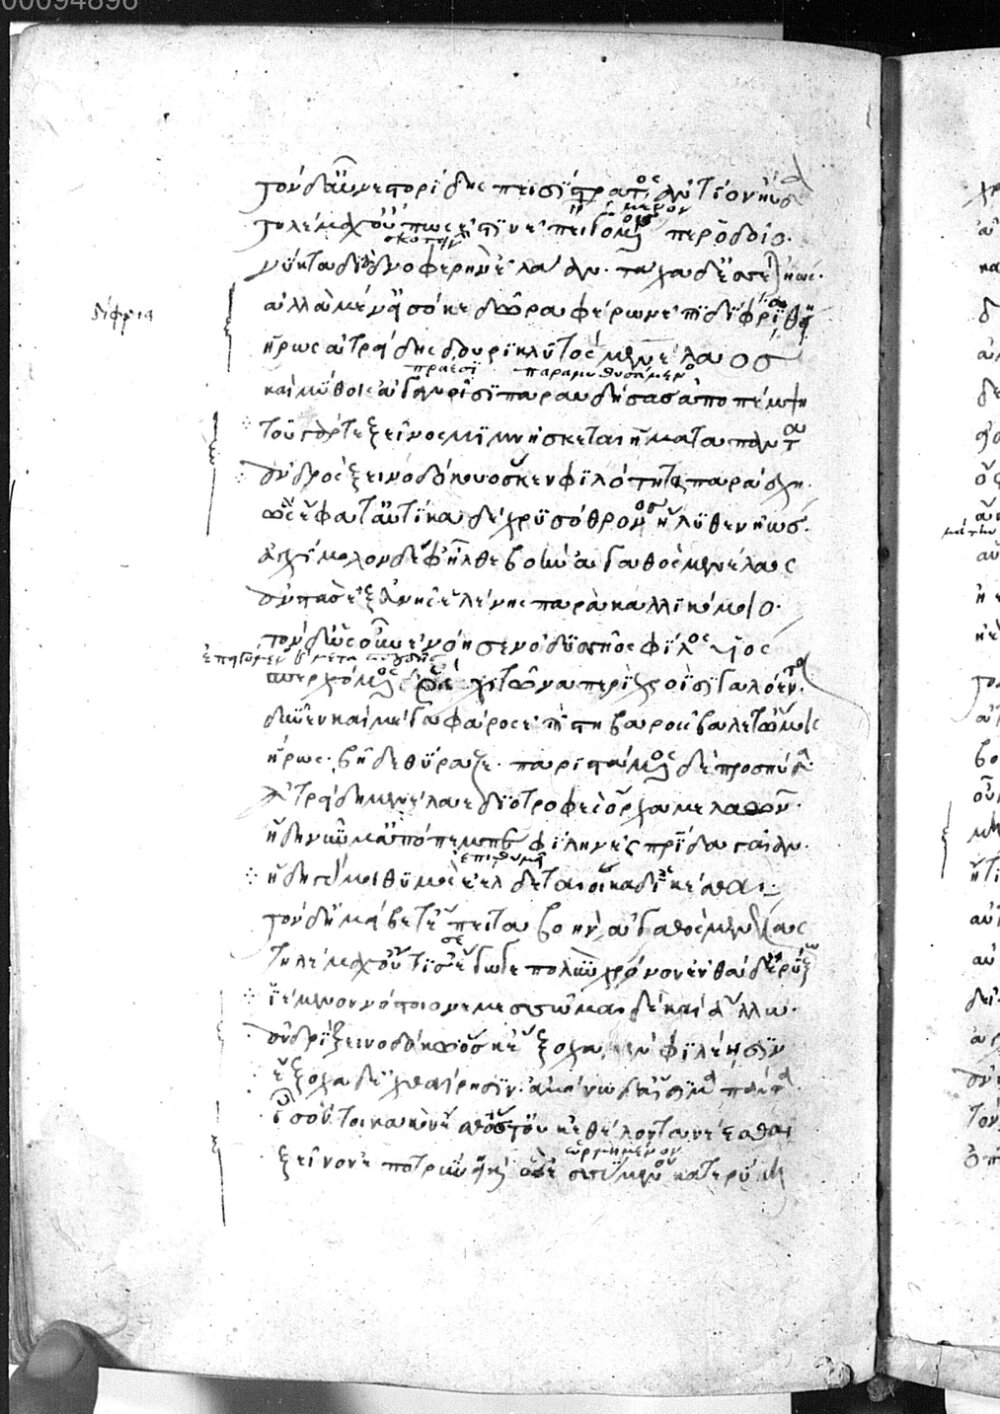 00094896
τὸν δ' αὖ νεστορίδης πεισίστρατος ἀντίον ηὔδα
τηλέμαχ' οὔπως ἔστιν ἐπειγομένους περ ὁδοῖο.
σκοτεινὴν
νύκτα διὰ δνοφερὴν ἐλάαν. τάχα δ' ἔσσεται ἠώς.
δίφρια
ἀλλὰ μέν' εἰσόκε δῶρα φέρων ἐπιδίφρια θήῃ
ἥρως ἀτρείδης δουρικλυτὸς μενέλαος
πραέσι παραμυθησάμενος
καὶ μύθοις ἀγανοῖσι παραυδήσας ἀποπέμψῃ
τοῦ γάρ τε ξεῖνος μιμνήσκεται ἤματα πάντα
ἀνδρὸς ξεινοδόκου ὅς κεν φιλότητα παράσχῃ.
ὣς ἔφατ' αὐτίκα δὲ χρυσόθρονος ἤλυθεν ἠώς.
ἀγχίμολον δέ σφ' ἦλθε βοὴν ἀγαθὸς μενέλαος
ἀνστὰς ἐξ εὐνῆς ἑλένης πάρα καλλικόμοιο.
τὸν δ' ὡς οὖν ἐνόησεν ὀδυσσῆος φίλος υἱὸς
σπερχόμενός ῥα χιτῶνα περὶ χροῒ σιγαλόεντα
δῦνεν καὶ μέγα φᾶρος ἐπὶ στιβαροῖς βάλετ' ὤμοις
ἥρως. βῆ δὲ θύραζε. παριστάμενος δὲ προσηύδα
ἀτρείδη μενέλαε διοτρεφὲς ὄρχαμε λαῶν.
ἤδη νῦν μ' ἀπόπεμπε φίλην ἐς πατρίδα γαῖαν.
ἐπιθυμεῖ
ἤδη γάρ μοι θυμὸς ἐέλδεται οἴκαδ' ἱκέσθαι
τὸν δ' ἠμείβετ' ἔπειτα βοὴν ἀγαθὸς μενέλαος
τηλέμαχ' οὔτι σ' ἔγωγε πολὺν χρόνον ἐνθάδ' ἐρύξω
ἱέμενον νόστοιο νεμεσσῶμαι δὲ καὶ ἄλλῳ.
ἀνδρὶ ξεινοδόκῳ ὅς κ' ἔξοχα μὲν φιλέῃσιν
ἔξοχα δ' ἐχθαίρῃσιν. ἀμείνω δ' αἴσιμα πάντα.
ἶσόν τοι κακόν ἐσθ' ὅς τ' οὐκ ἐθέλοντα νέεσθαι
ὡρμημένον
ξεῖνον ἐποτρύνῃ καὶ ὃς ἐσσύμενον κατερύκῃ